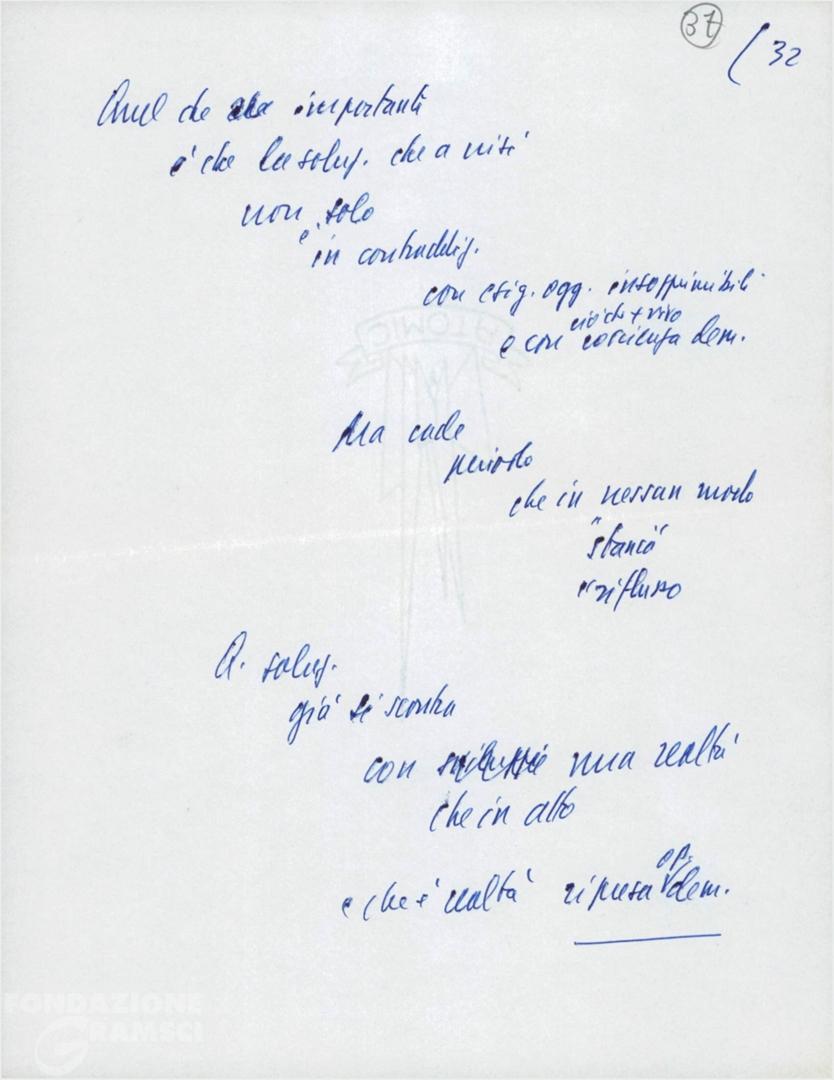 37
( 32
Quel che importante
è che la soluz. che a visi
non solo
è in contraddiz.
con esig. ogg. insopprimibili
ciò che + vivo
e con coscienza dem.
ATOMIC
Ma cade
periodo
che in nessun modo
"stanco"
e riflusso
Q. soluz.
già si scontra
con una realtà
che in atto
e che è realtà ripresa op. dem.
FONDAZIONE
GRAMSCI